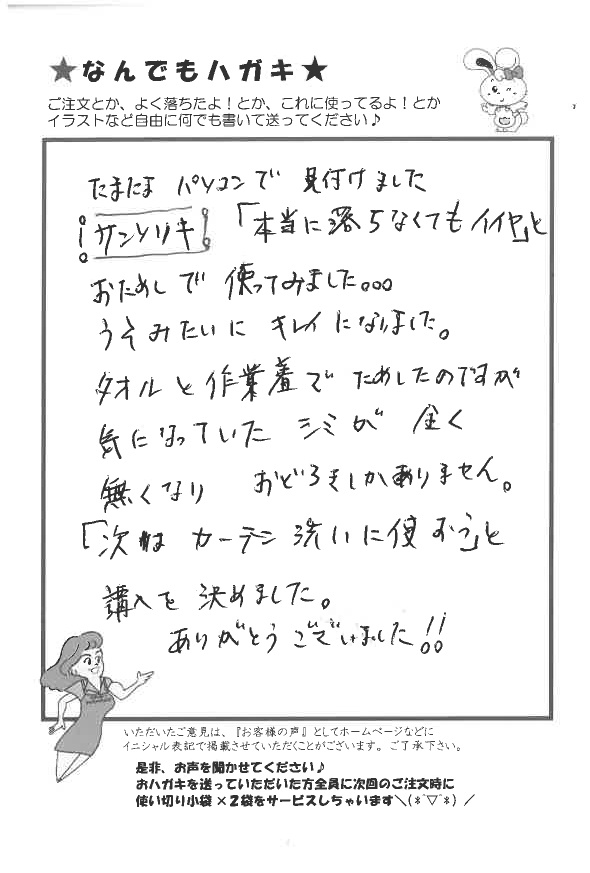 ★なんでもハガキ★
ご注文とか、よく落ちたよ！とか、これに使ってるよ！とか
イラストなど自由に何でも書いて送ってください♪
たまたま パソコンで 見付けました
サンソリキ 「本当に落ちなくてもイイヤ」と
おためしで 使ってみました。。。
うそみたいに キレイになりました。
タオルと作業着で ためしたのですが
気になっていた シミが 全く
無くなり おどろきしかありません。
「次は カーテン洗いに使おう」と
講入を 決めました。
ありがとうございました!!
いただいたご意見は、『お客様の声』としてホームページなどに
イニシャル表記で掲載させていただくことがございます。ご了承下さい。
是非、お声を聞かせてください♪
おハガキを送っていただいた方全員に次回のご注文時に
使い切り小袋×２袋をサービスしちゃいます＼(*ˇ▽ˇ*)／